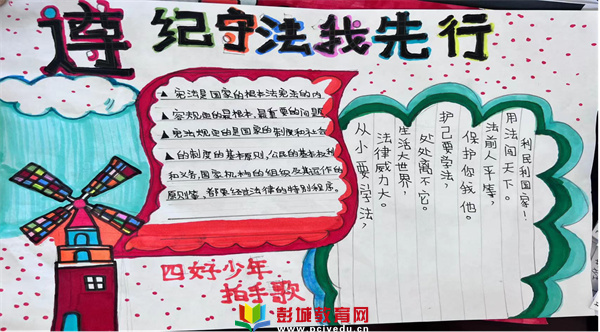 遵纪守法我先行
▲ 宪法是国家的根本法宪法的内
▲ 容规定的是根本、最重要的问题
▲ 宪法规定的是国家的制度和社会
▲ 的制度的基本原则、公民的基本权利
和义务,国家机构的组织及其运作的
原则等、都要经过法律的特别程序。
从小要学法,
法律威力大。
生活大世界,
处处离不它。
护己要学法,
保护你我他。
法前人平等,
用法闯天下。
利民利国家!
四好少年
拍手歌
彭城教育网
www.pcjyedu.cn